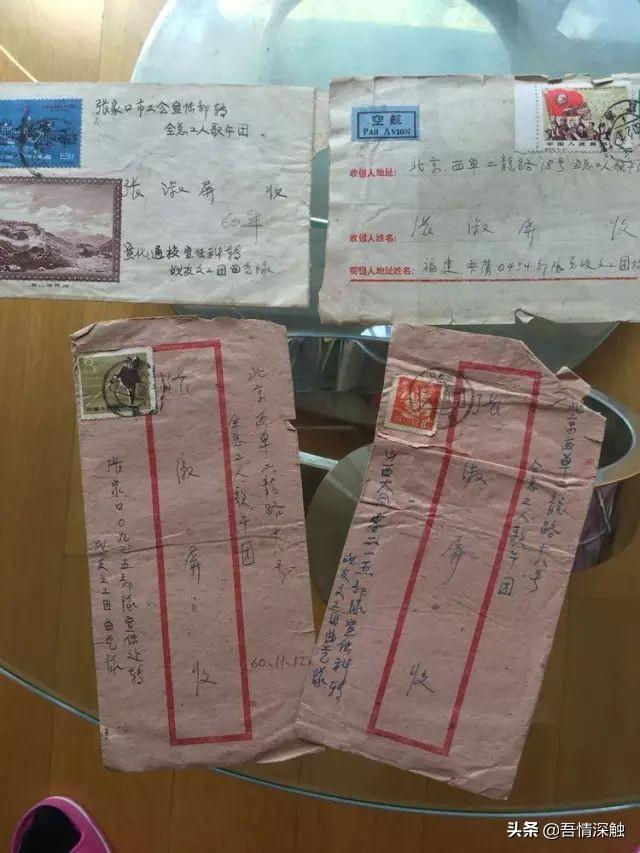 张家口市工会宣传部转
全总工人歌午团
张淑屏 收
60年
宣化通校宣传科转
战友文工团曲艺队
空航
PAR AVION
中国人民邮政
收信人地址:
北京西单二龍路18号全总工人歌午团
收信人姓名:
张淑屏 收
寄信人地址姓名:
福建
8
北京西单二龍路十八号
全总工人歌午团
张淑屏收
张家口〇九七五部隊宣传处转
战友文工团曲艺隊
60.11.12.
北京西单二龍路十八号
全总工人歌午团
张淑屏 收
山西大同零二一五部隊宣传科转
战友文工团曲艺隊
头条 @吾情深触